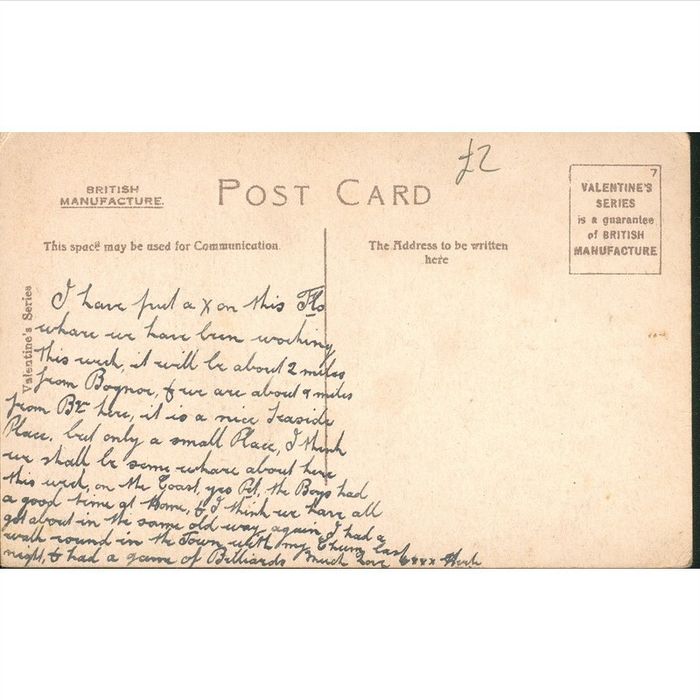 £2
BRITISH
MANUFACTURE.
POST CARD
7
VALENTINE'S
SERIES
is a guarantee
of BRITISH
MANUFACTURE
This space may be used for Communication.
The Address to be written
here
Valentine's Series
I have put a X on this Flo
whare we have been working
this week, it will be about 2 miles
from Bognor, & we are about 9 miles
from here, it is a nice Seaside
Place, but only a small Place, I think
we shall be some whare about here
this week, on the Coast, yes Pet, the Boys had
a good time at Home, & I think we have all
got about in the same old way again, I had a
walk round in the Town with my Chum last
night, & had a game of Billiards Much Love xxxx Herb